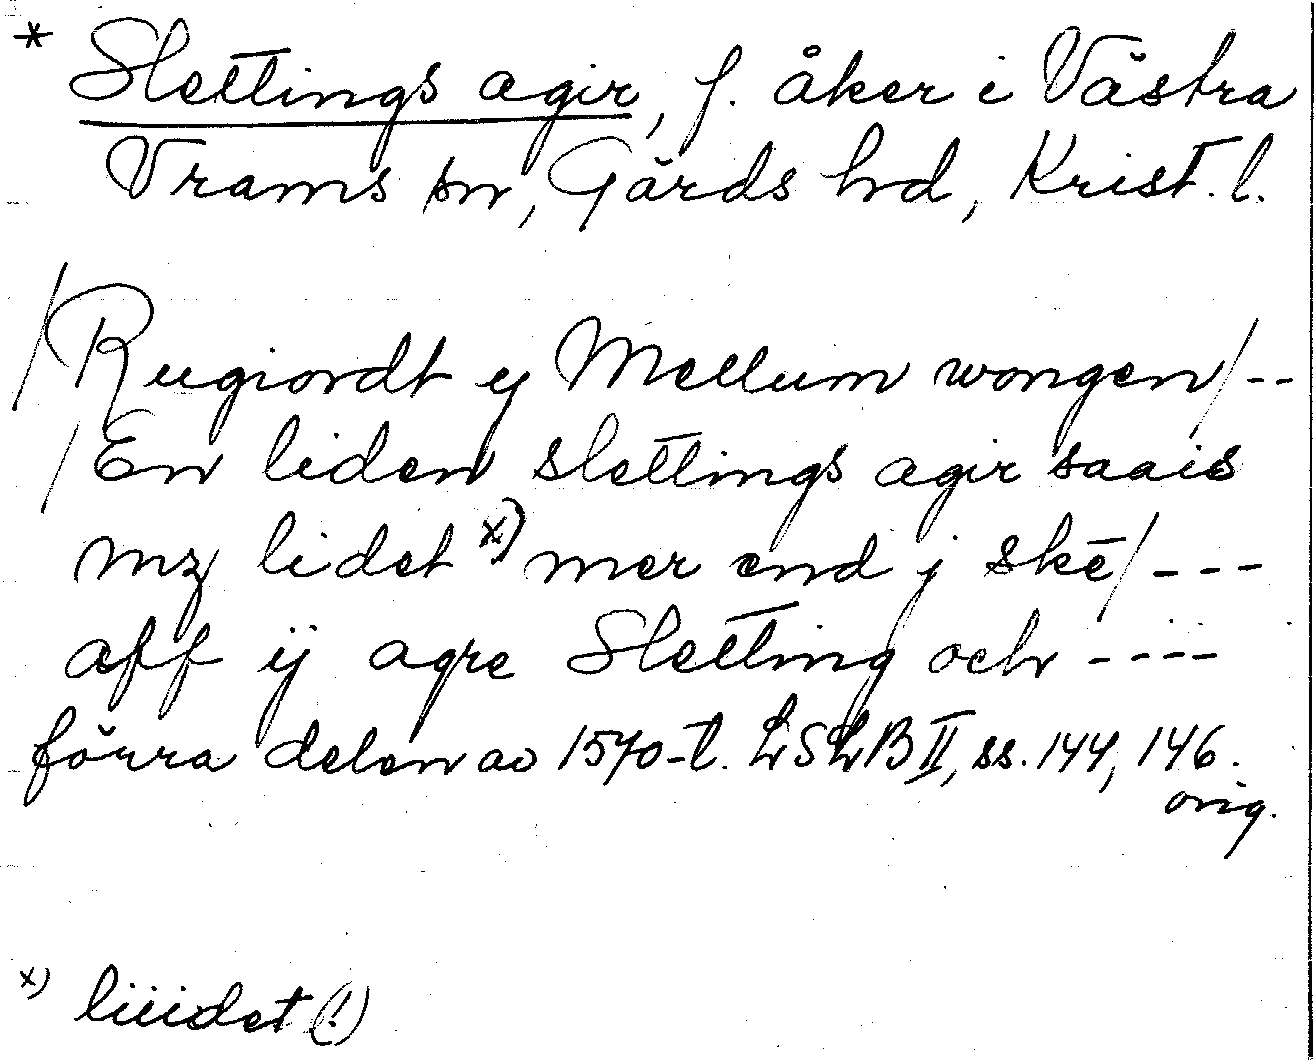 * Slettings agir, f. åker i Västra
Vrams sn, Gärds hd, Krist. l.
/Rugiordt ij Mellum wongen/--
/En liden slettings agir saais
mz lidet x) mer end j skē/---
aff ij agre Sletting och ----
förra delen av 1570-t. LSLB II, ss. 144, 146.
orig.
x) liiidet (!)